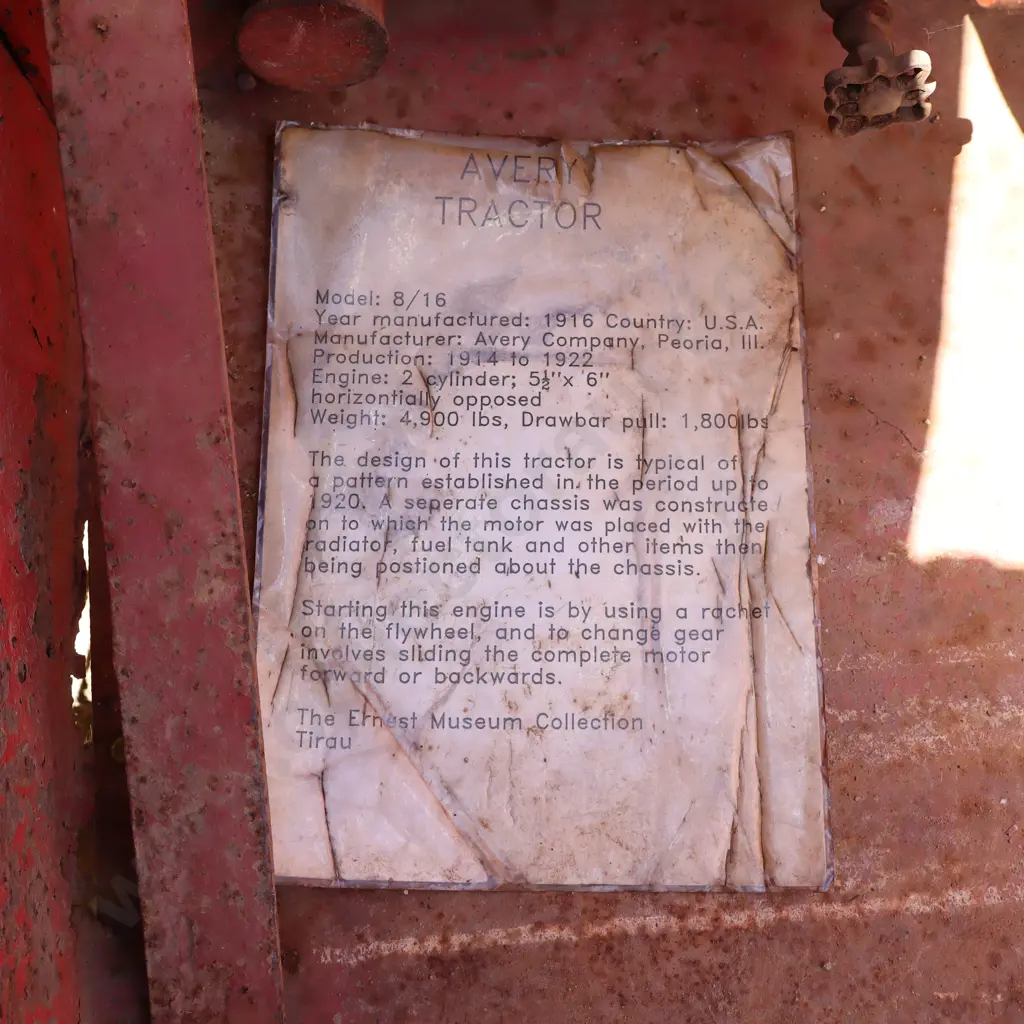 AVERY
TRACTOR
Model: 8/16
Year manufactured: 1916 Country: U.S.A.
Manufacturer: Avery Company, Peoria, Ill.
Production: 1914 to 1922
Engine: 2 cylinder; 5½"x 6"
horizontially opposed
Weight: 4,900 lbs, Drawbar pull: 1,800lbs
The design of this tractor is typical of
a pattern established in the period up to
1920. A seperate chassis was constructe
on to which the motor was placed with the
radiator, fuel tank and other items then
being postioned about the chassis.
Starting this engine is by using a rachet
on the flywheel, and to change gear
involves sliding the complete motor
forward or backwards.
The Ernest Museum Collection
Tirau